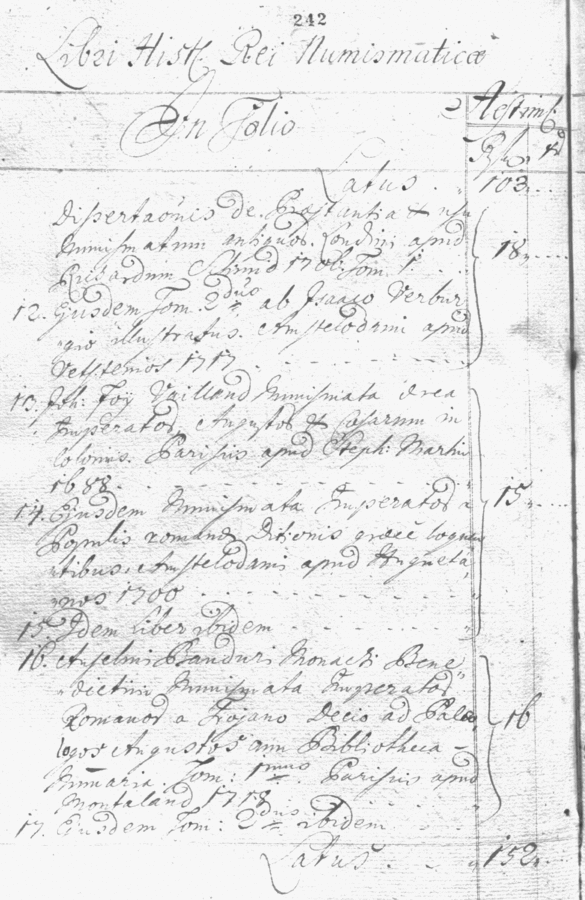 242
Libri Hist. Rei Numismaticæ
In Folio
Æstim
Rfl. xd
Latus . „ 103 . . .
Dissertaōnis de Præstantia & usu
Numismatum antiquor. Londini apud
Richardum 1706. Tom. 1 . 18 „ . . .
12. Ejusdem Tom. 2dus ab Isaaco Verbur
„gio illustratus. Amstelodami apud
Vetstenios 1717 . . . . .
13. Joh: Foÿ Vailland Numismata ærea
Imperator. Augustor & Cæsarum in
Colonijs. Parisijs apud Steph: Martin
1688. . . . . .
14. Ejusdem Numismata Imperator a 15 „ . . .
Populis romanæ Ditionis græcè loquen
„tibus. Amstelodami apud Hugueta
„nos 1700 . . . . .
15. Idem Liber ibidem . . . .
16. Anselmi Banduri Monachi Bene
„dictini Numismata Imperator
Romanor a Trajano Decio ad Palæo 16
logos Augustos cum Bibliotheca
Numaria. Tom: 1mus Parisijs apud
Montaland 1718 . . . .
17. Ejusdem Tom: 2dus ibidem . . .
Latus . . „ 152 „